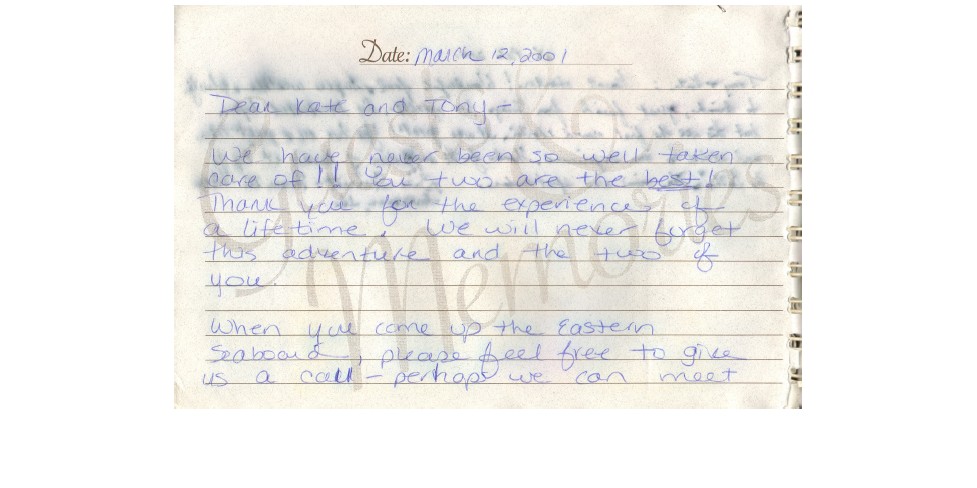 Date: March 12, 2001
Dear Kate and Tony -
We have never been so well taken
care of!! You two are the best!
Thank you for the experience of
a lifetime. We will never forget
this adventure and the two of
you.
When you come up the Eastern
Seaboard, please feel free to give
us a call - perhaps we can meet
Guest
Memories